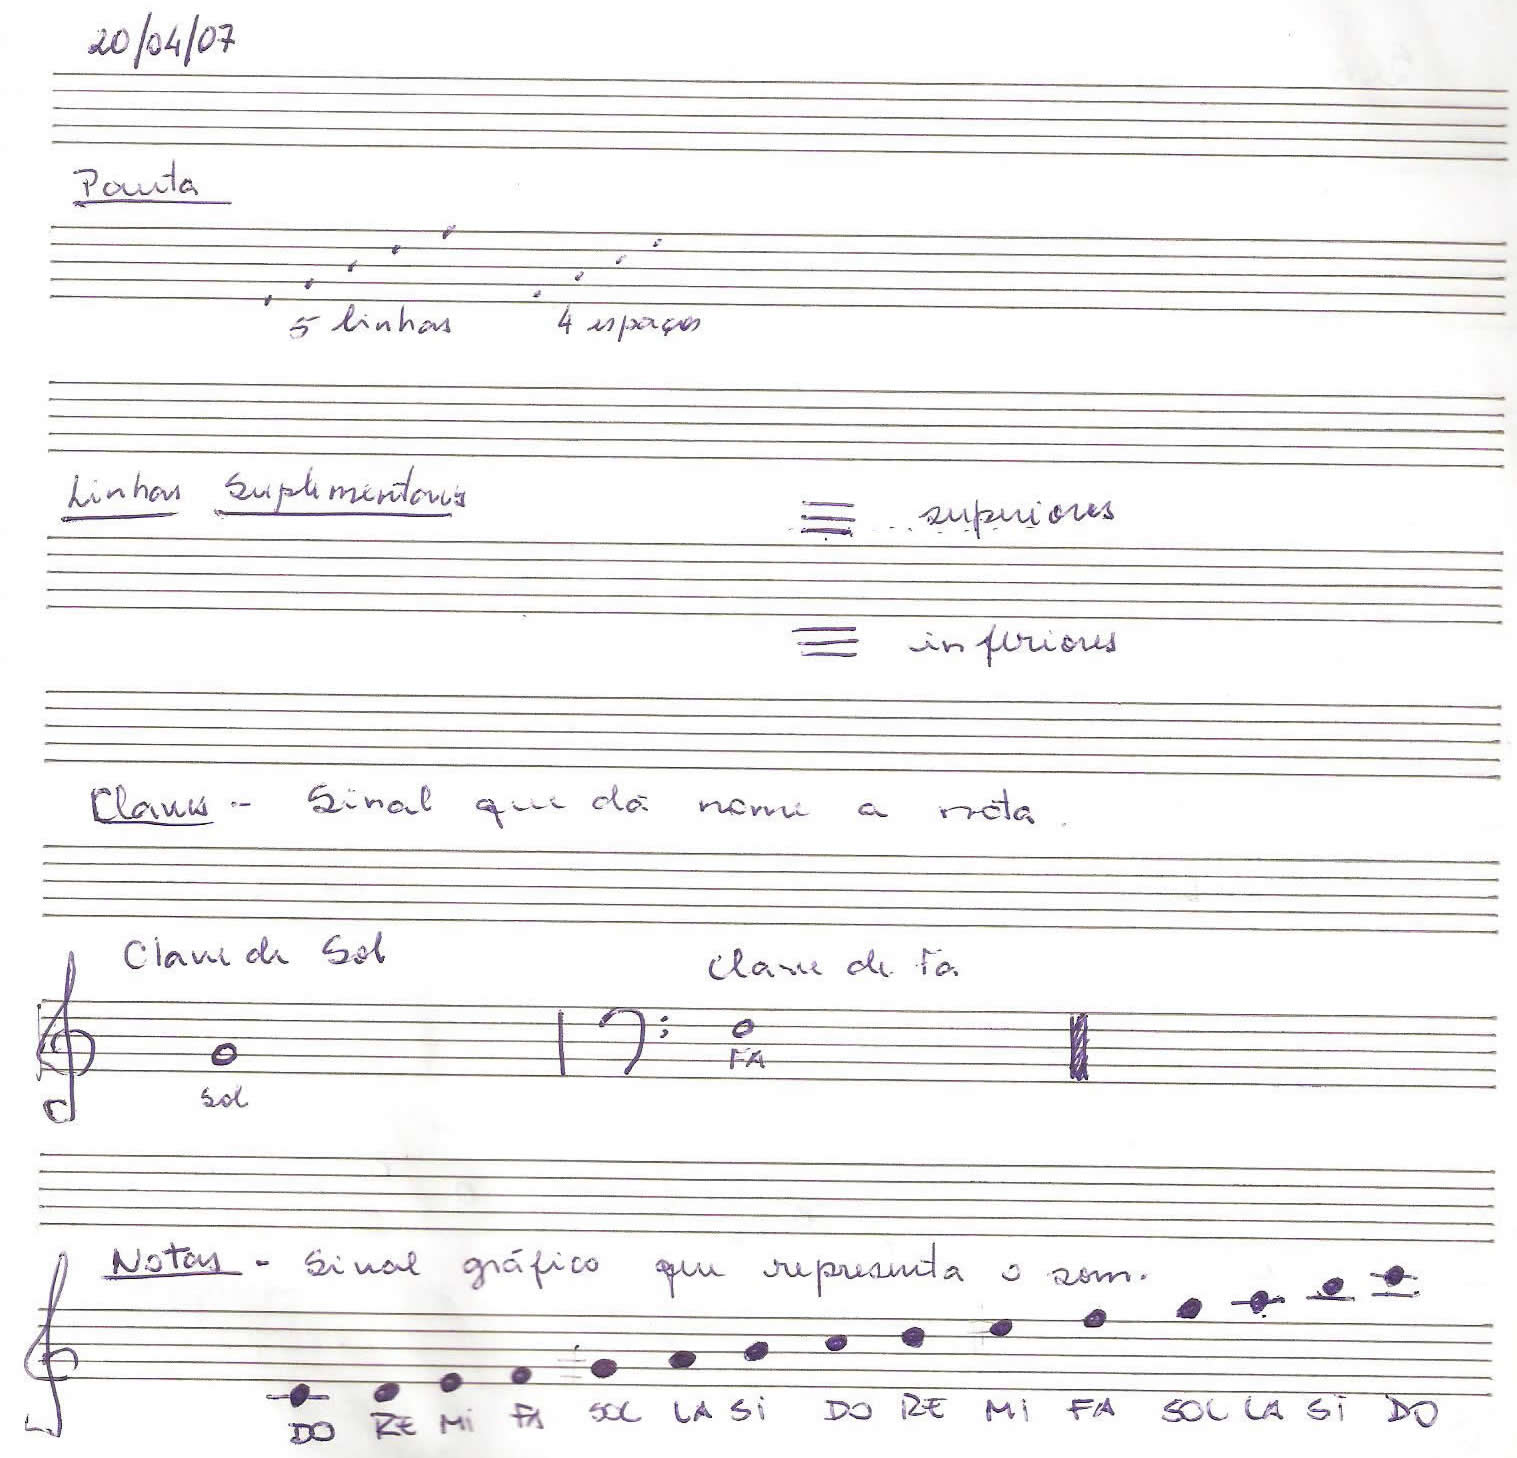 20/04/07
Pauta
5 linhas 4 espaços
Linhas Suplementares superiores
inferiores
Claves - Sinal que dá nome a nota.
Clave de Sol Clave de Fa
FA
Sol
Notas - Sinal gráfico que representa o som.
DO RE Mi FA SOL LA Si DO RE Mi FA SOL LA Si DO